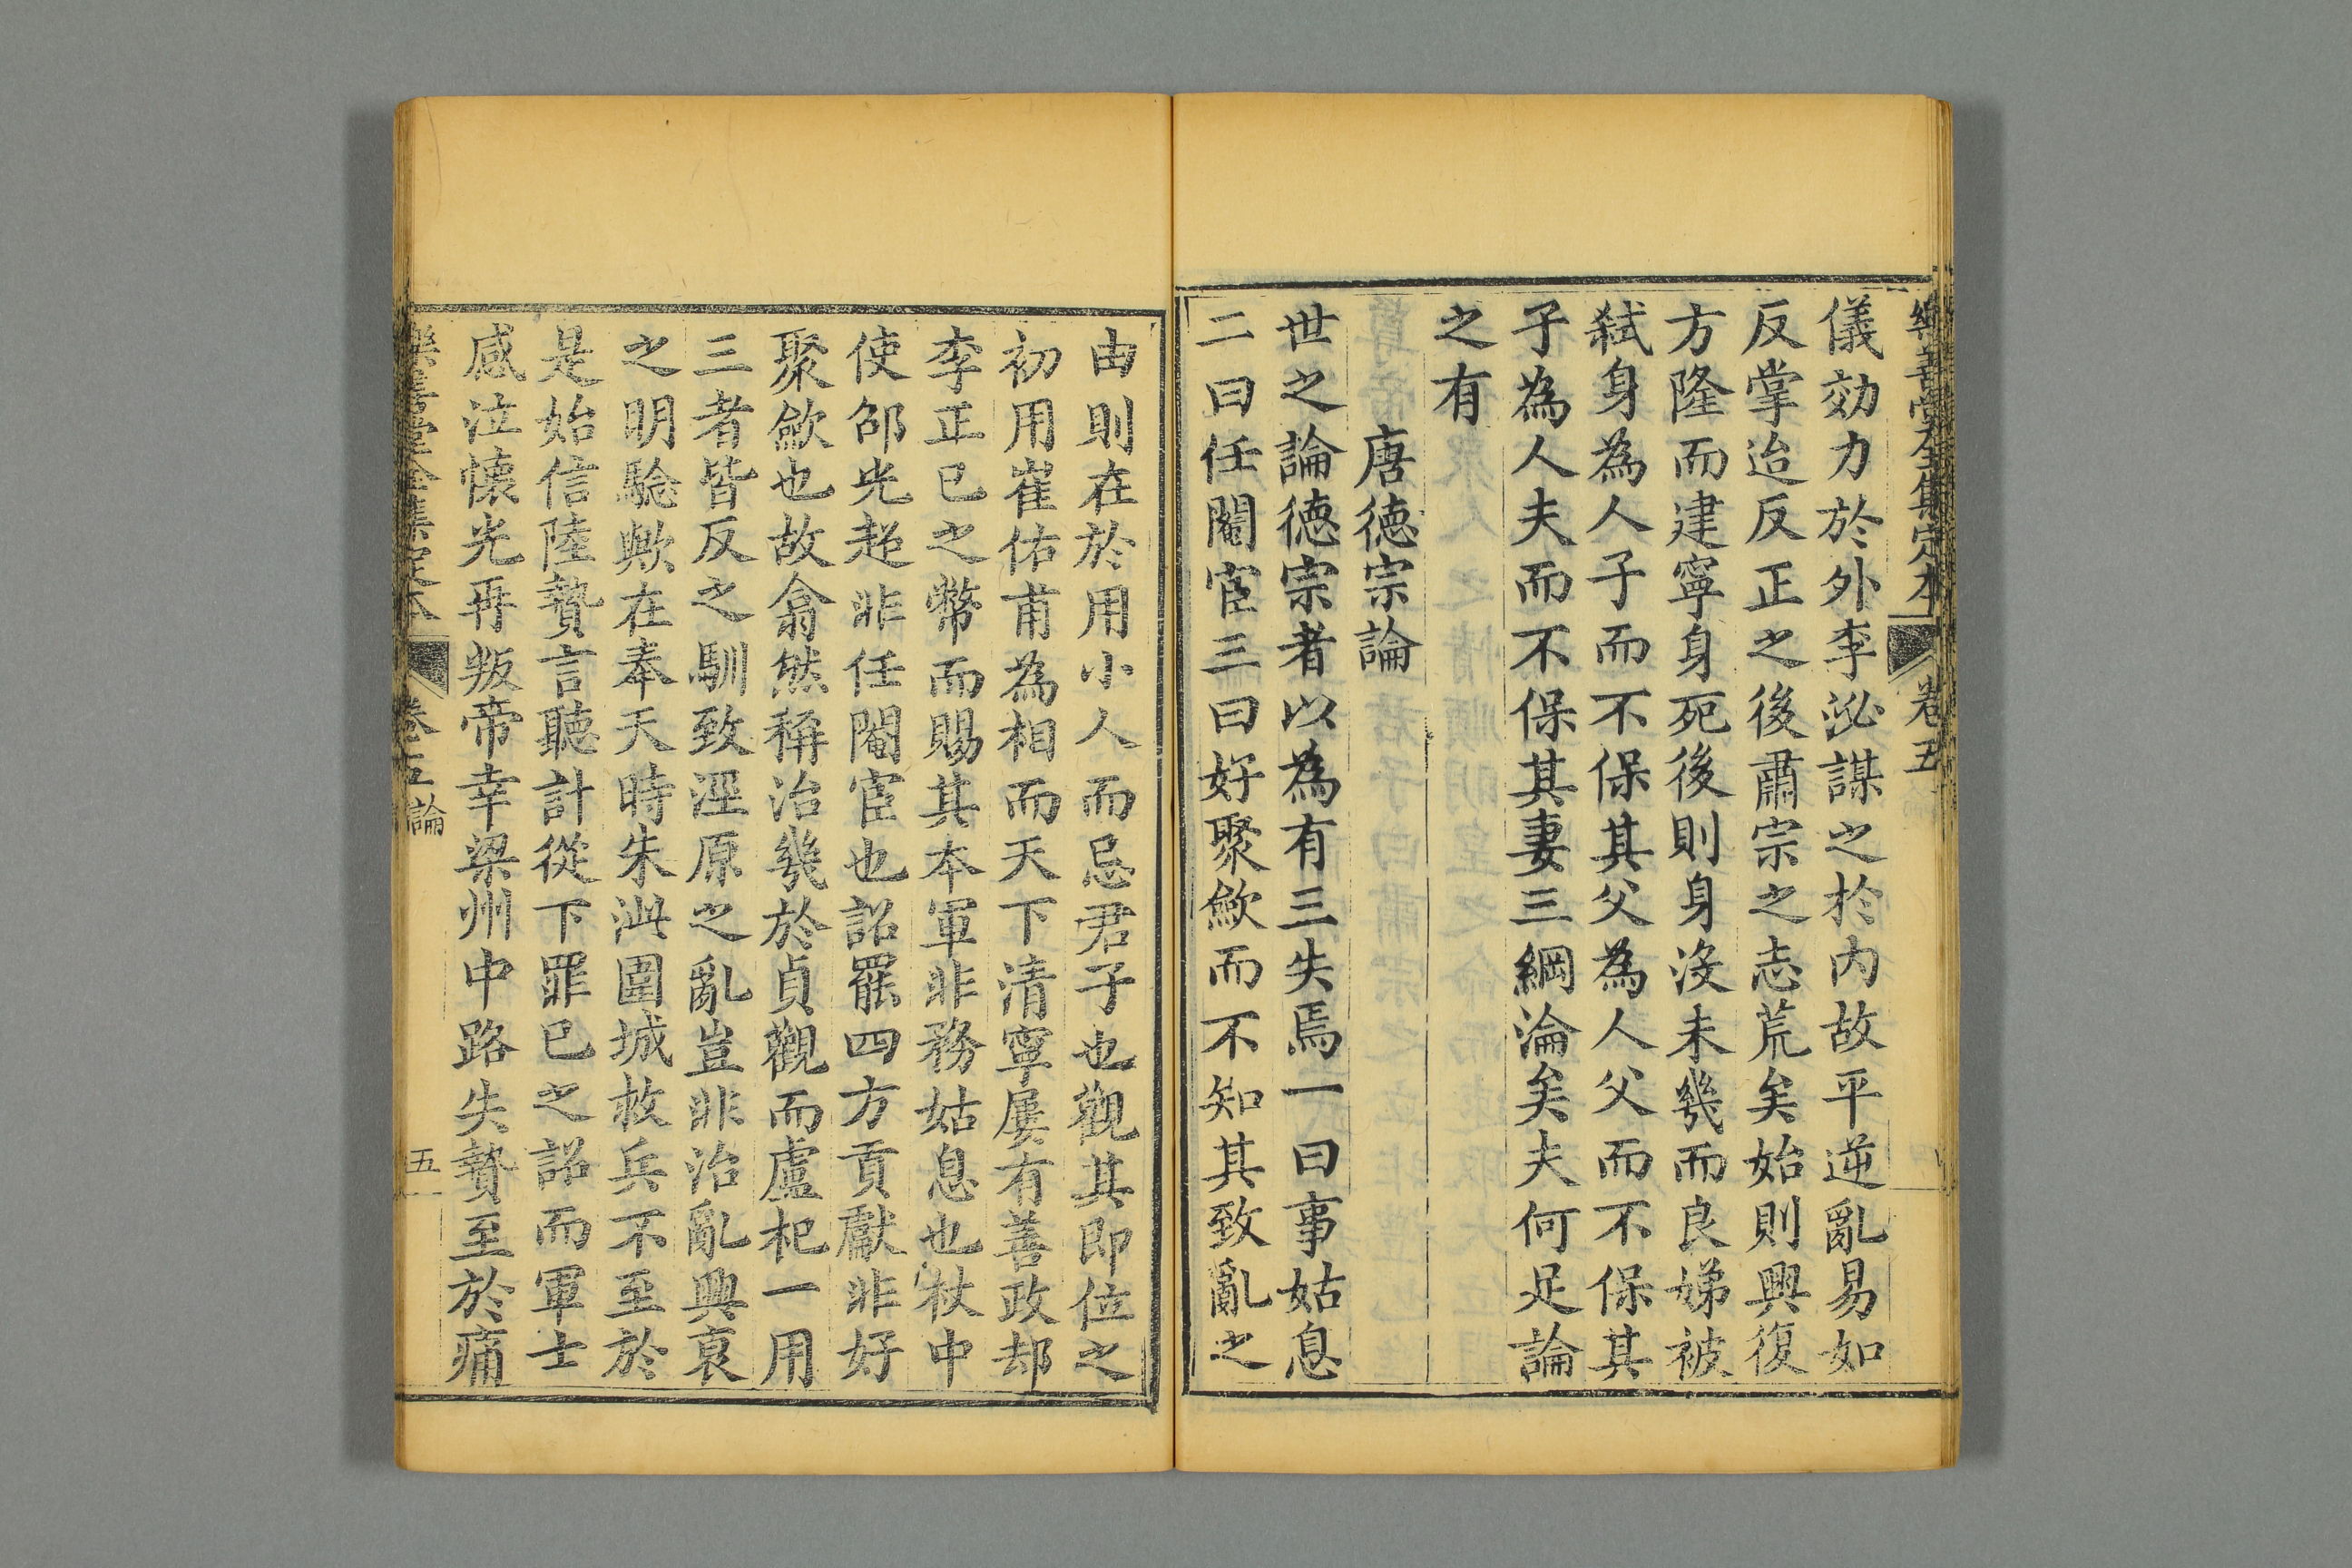 樂善堂全集定本 卷五
儀効力於外李泌謀之於内故平逆亂易如
反掌迨反正之後肅宗之志荒矣始則興復
方隆而建寧身死後則身沒未幾而良娣被
弑身為人子而不保其父為人父而不保其
子為人夫而不保其妻三綱淪矣夫何足論
之有
唐徳宗論
世之論徳宗者以為有三失焉一曰事姑息
二曰任閹宦三曰好聚歛而不知其致亂之
由則在於用小人而忌君子也觀其即位之
初用崔佑甫為相而天下清寧屢有善政却
李正已之幣而賜其本軍非務姑息也杖中
使邵光超非任閹宦也詔罷四方貢獻非好
聚歛也故翕然稱治幾於貞觀而盧杞一用
三者皆反之馴致涇原之亂豈非治亂興衰
之明驗歟在奉天時朱泚圍城救兵不至於
是始信陸贄言聽計從下罪已之詔而軍士
感泣懐光再叛帝幸梁州中路失贄至於痛
樂善堂全集定本 卷五論 五